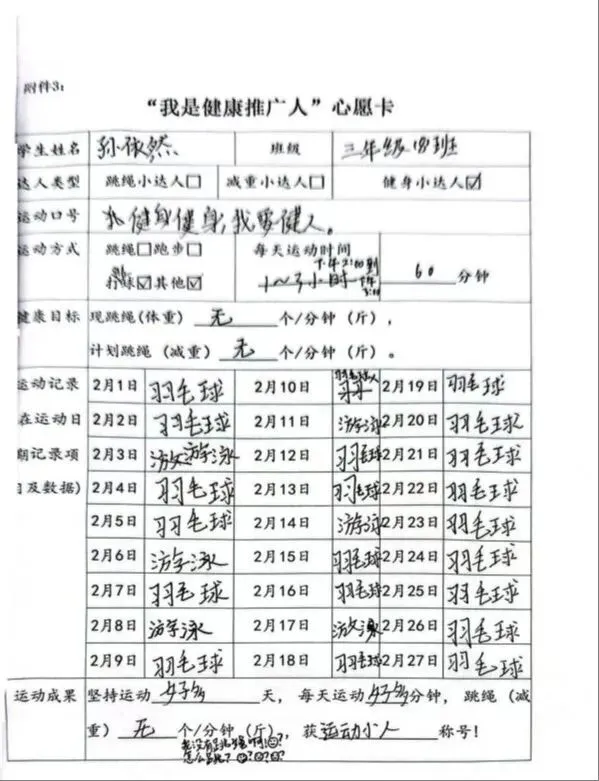 附件3：
“我是健康推广人”心愿卡
学生姓名 孙依然 班级 三年级(8)班
达人类型 跳绳小达人□ 减重小达人□ 健身小达人☑
运动口号 健身健身，我要健人。
运动方式 跳绳□跑步□ 每天运动时间 60 分钟
打球☑其他☑ 1～3小时 下午2:00到
健康目标 现跳绳(体重) 无 个/分钟（斤），
计划跳绳（减重） 无 个/分钟（斤）。
运动记录 2月1日 羽毛球 2月10日 2月19日 羽毛球
在运动日 2月2日 羽毛球 2月11日 游泳 2月20日 羽毛球
期记录项 2月3日 游泳 2月12日 羽毛球 2月21日 羽毛球
目及数据) 2月4日 羽毛球 2月13日 羽毛球 2月22日 羽毛球
2月5日 羽毛球 2月14日 游泳 2月23日 羽毛球
2月6日 游泳 2月15日 羽毛球 2月24日 羽毛球
2月7日 羽毛球 2月16日 羽毛球 2月25日 羽毛球
2月8日 游泳 2月17日 游泳 2月26日 羽毛球
2月9日 羽毛球 2月18日 羽毛球 2月27日 羽毛球
运动成果 坚持运动 好多 天，每天运动 好多 分钟，跳绳（减
重） 无 个/分钟（斤），获 运动小人 称号！
我没有跳绳啊！？
怎么跳？？？？